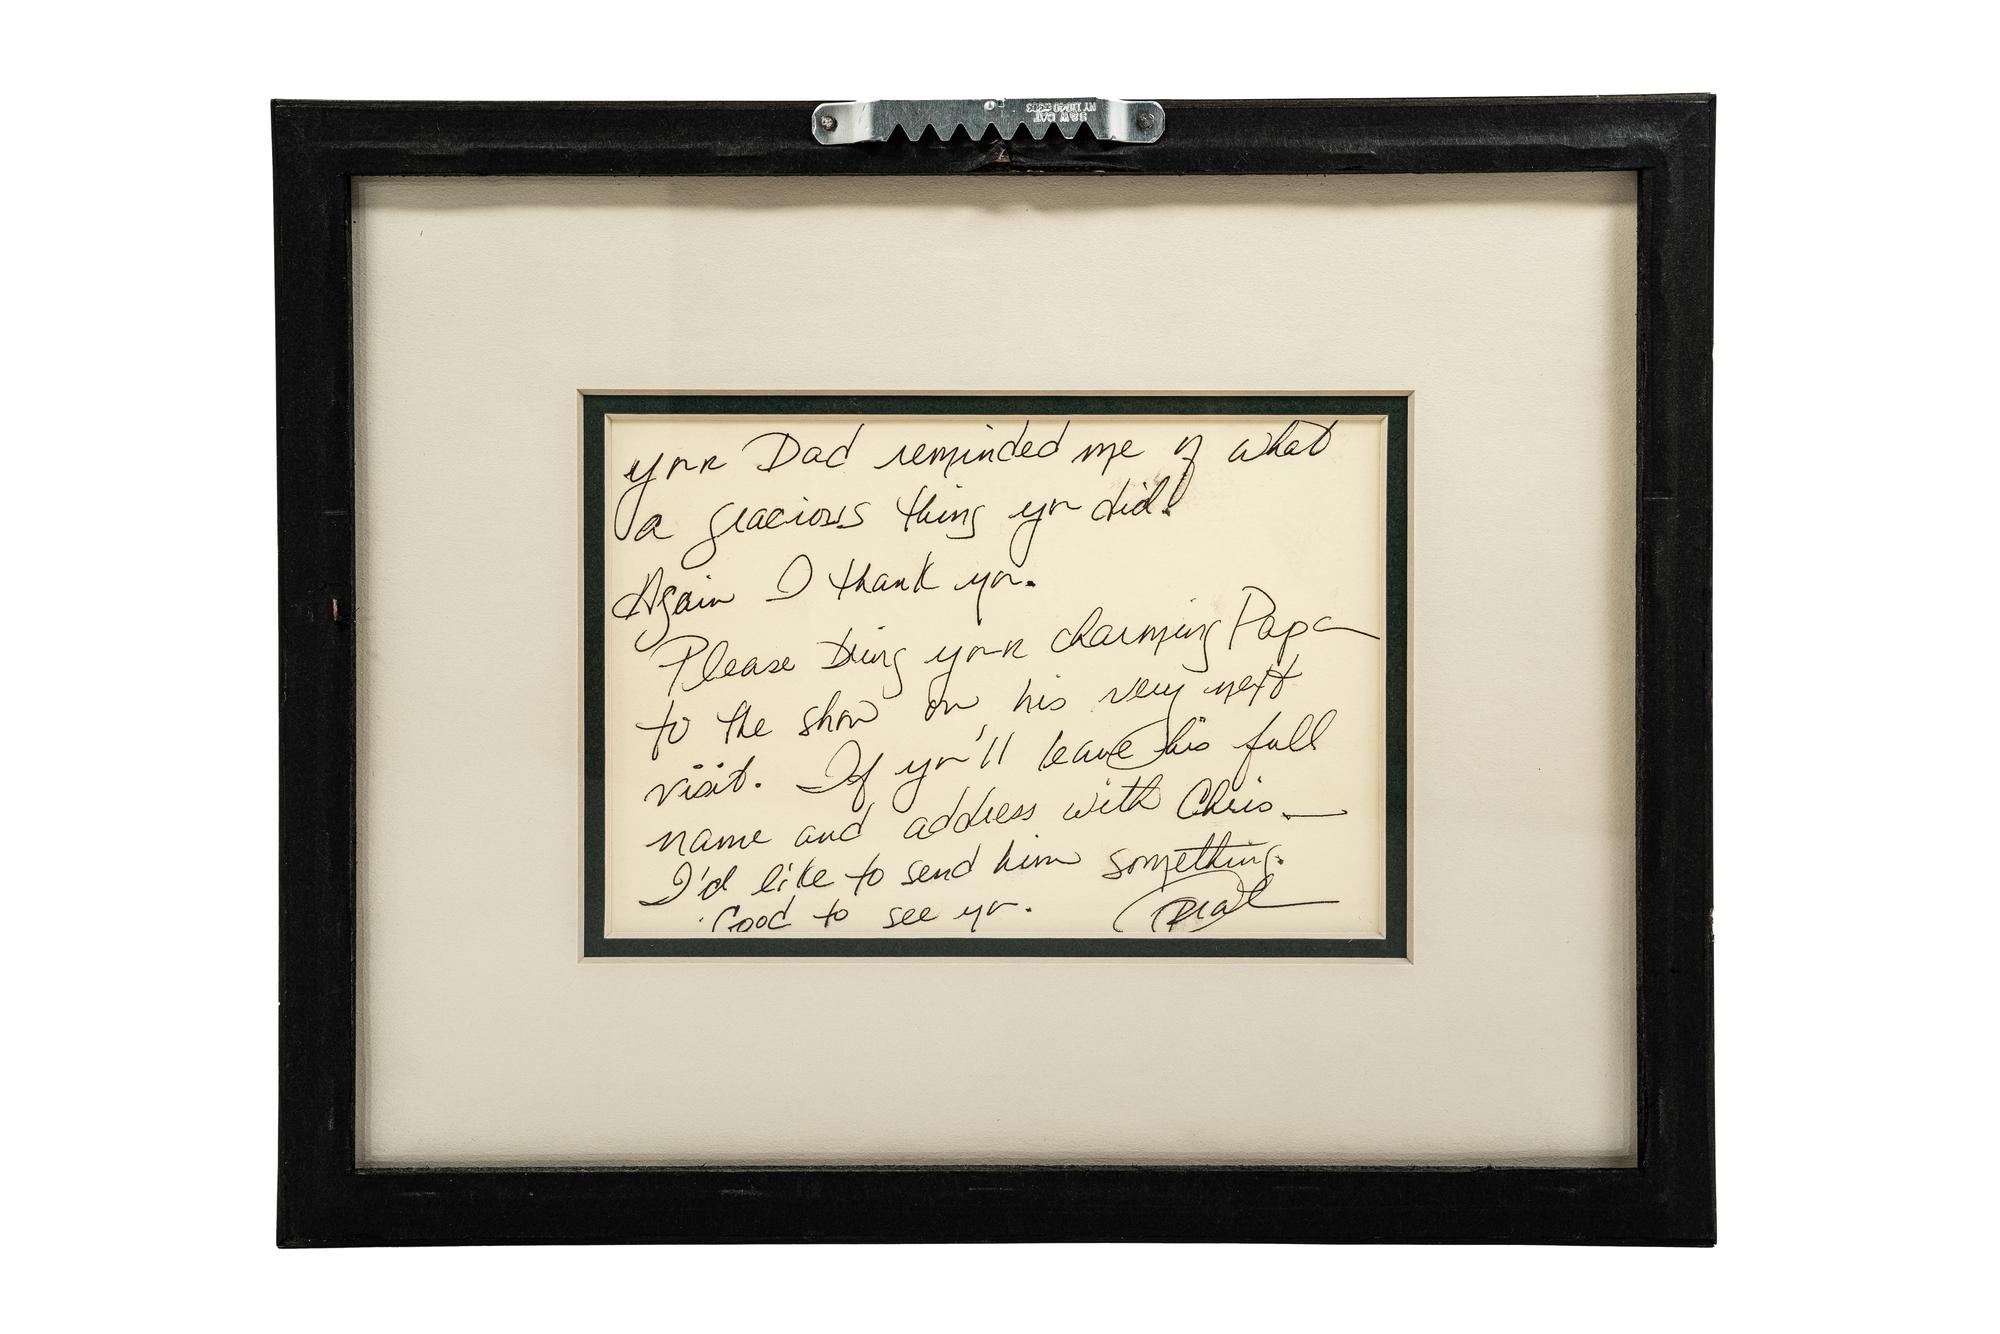 S&W CAT
NY 11040
your Dad reminded me of what
a gracious thing you did!
Again I thank you.
Please bring your charming Papa
to the show on his very next
visit. If you'll leave his full
name and address with Chris —
I'd like to send him something.
Good to see you.